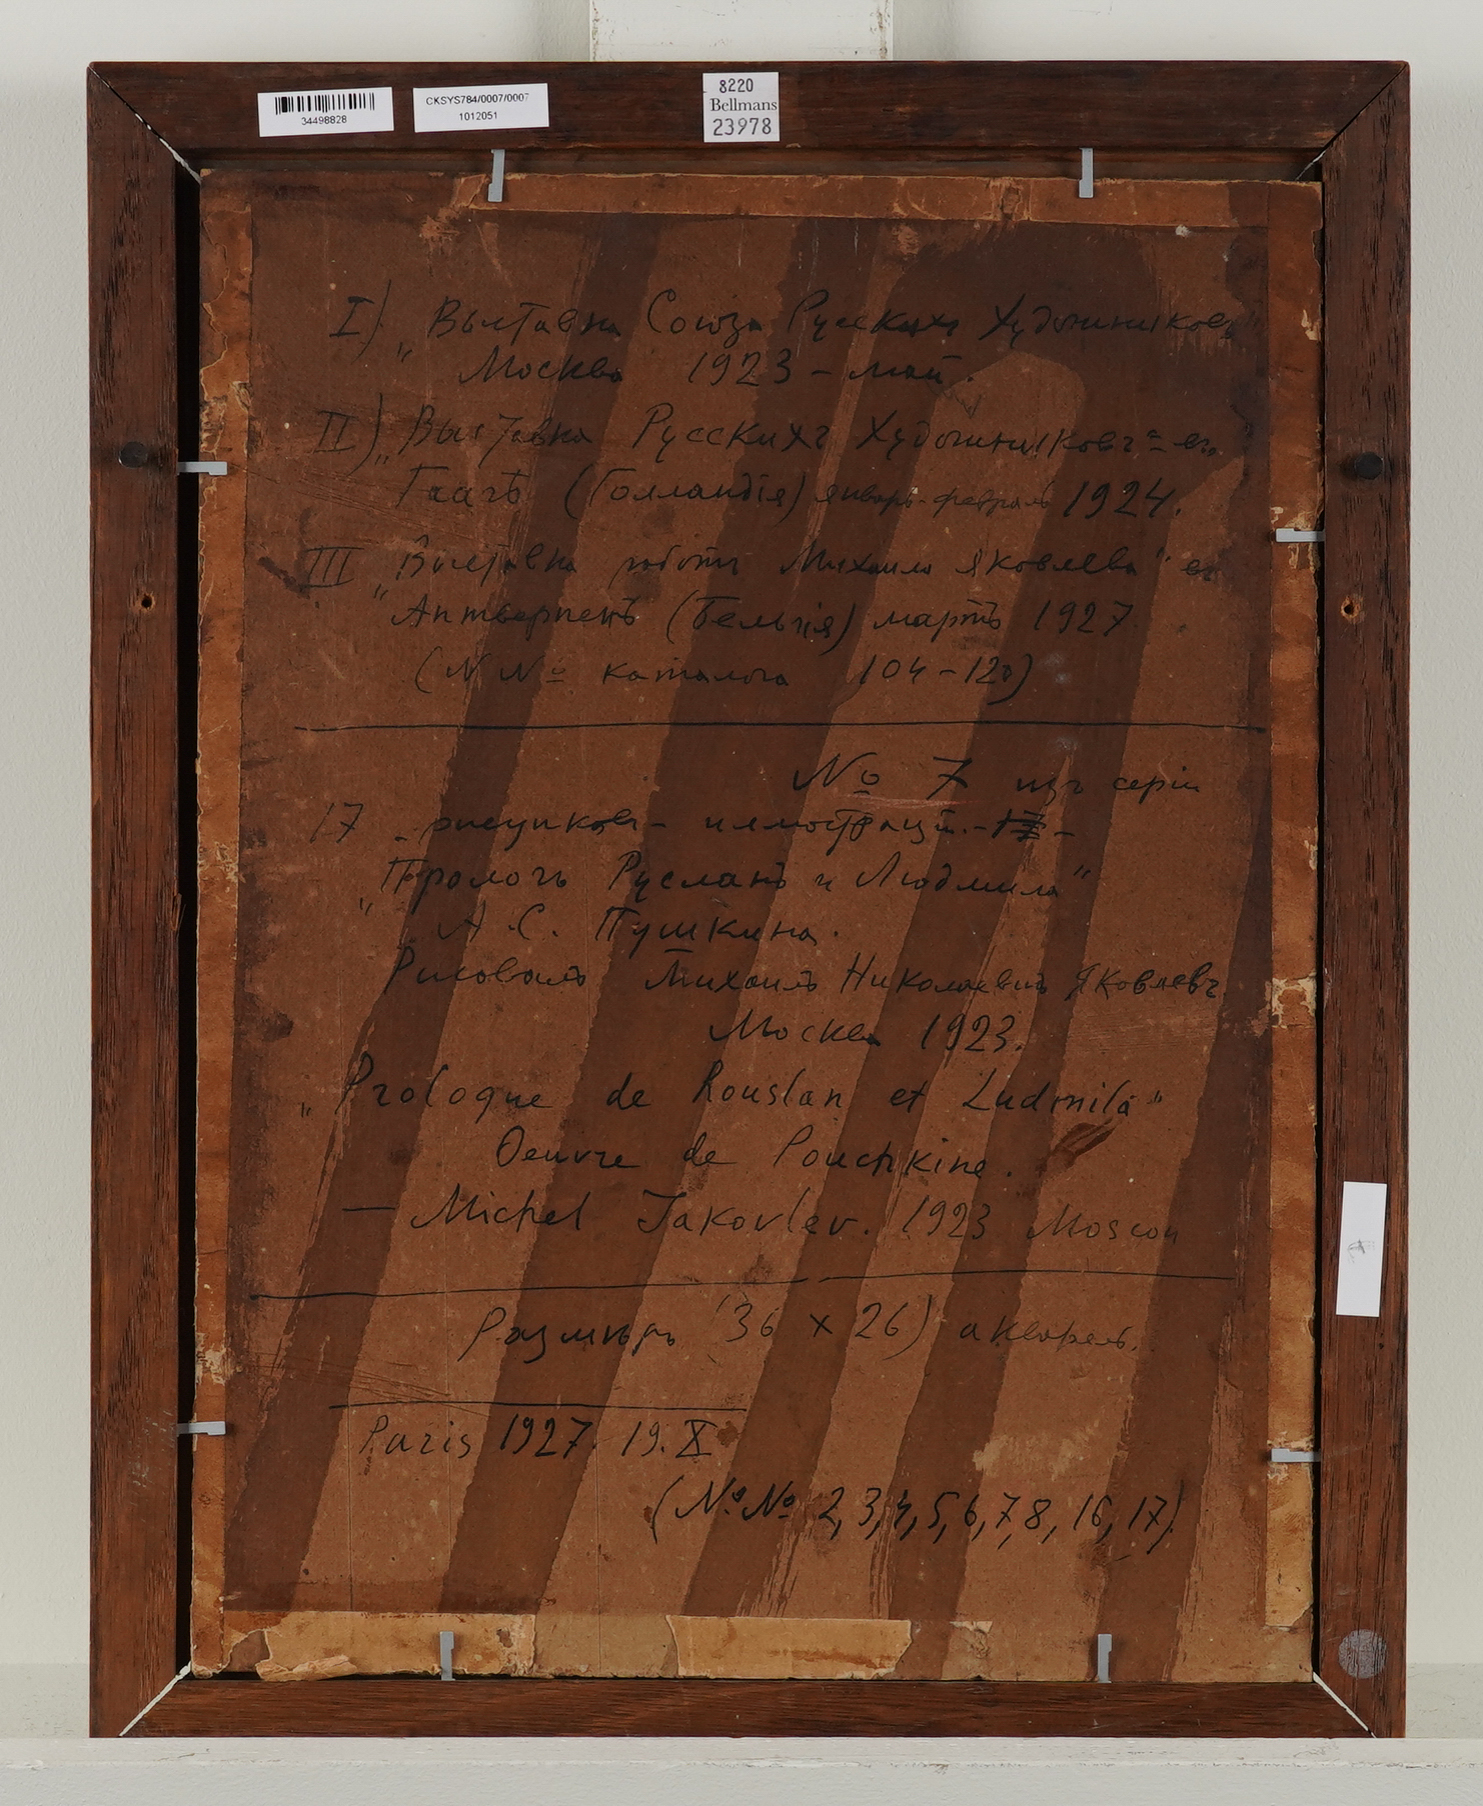 34498828
CKSYS784/0007/0007
1012051
8220
Bellmans
23978
I) „Выставка Союза Русскихъ Художниковъ"
Москва 1923 – май.
II) „Выставка Русскихъ Художниковъ" въ
Гаагѣ (Голландія) январь-февраль 1924.
III „Выставка работъ Михаила Яковлева" въ
Антверпенѣ (Бельгія) мартъ 1927
(N Nº каталога 104-120)
Nº 7 изъ серіи
17 – рисунковъ – иллюстрацій. – 17 –
„Прологъ Русланъ и Людмила"
А. С. Пушкина.
Рисовалъ Михаилъ Николаевичъ Яковлевъ
Москва 1923.
„Prologue de Rouslan et Ludmila"
Oeuvre de Pouchkine.
— Michel Jakovlev. 1923 Moscou
Размѣръ (36 x 26) акварель.
Paris 1927. 19. X
(Nº Nº 2, 3, 4, 5, 6, 7, 8, 16, 17).